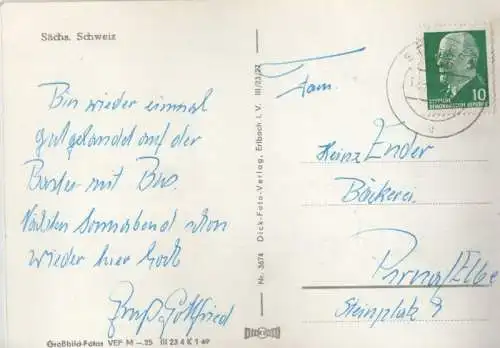 Sächs. Schweiz
Bin wieder einmal
gut gelandet auf der
Bastei mit Bus.
Nächsten Sonnabend schon
wieder hier hoch
Gruß Gottfried
Großbild-Fotos VEP M -.25 III 23 4 K 1 69
Nr. 3674 Dick-Foto-Verlag, Erlbach i. V. III/23/27
10
DEUTSCHE
DEMOKRATISCHE REPUBLIK
Fam.
Heinz Ender
Bäckerei
Pirna/Elbe
Steinplatz